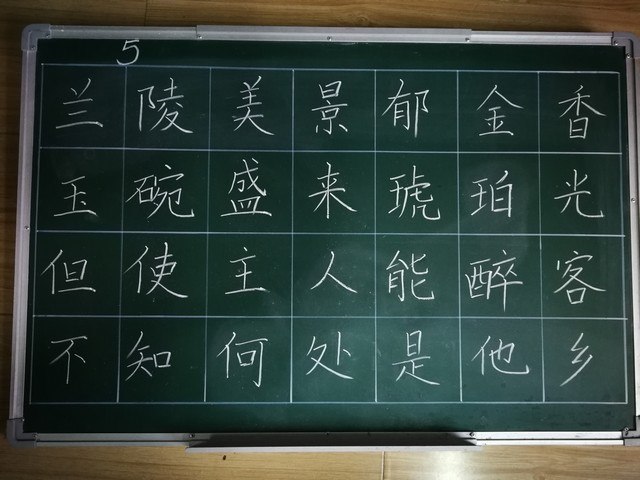 5
兰陵美景郁金香
玉碗盛来琥珀光
但使主人能醉客
不知何处是他乡